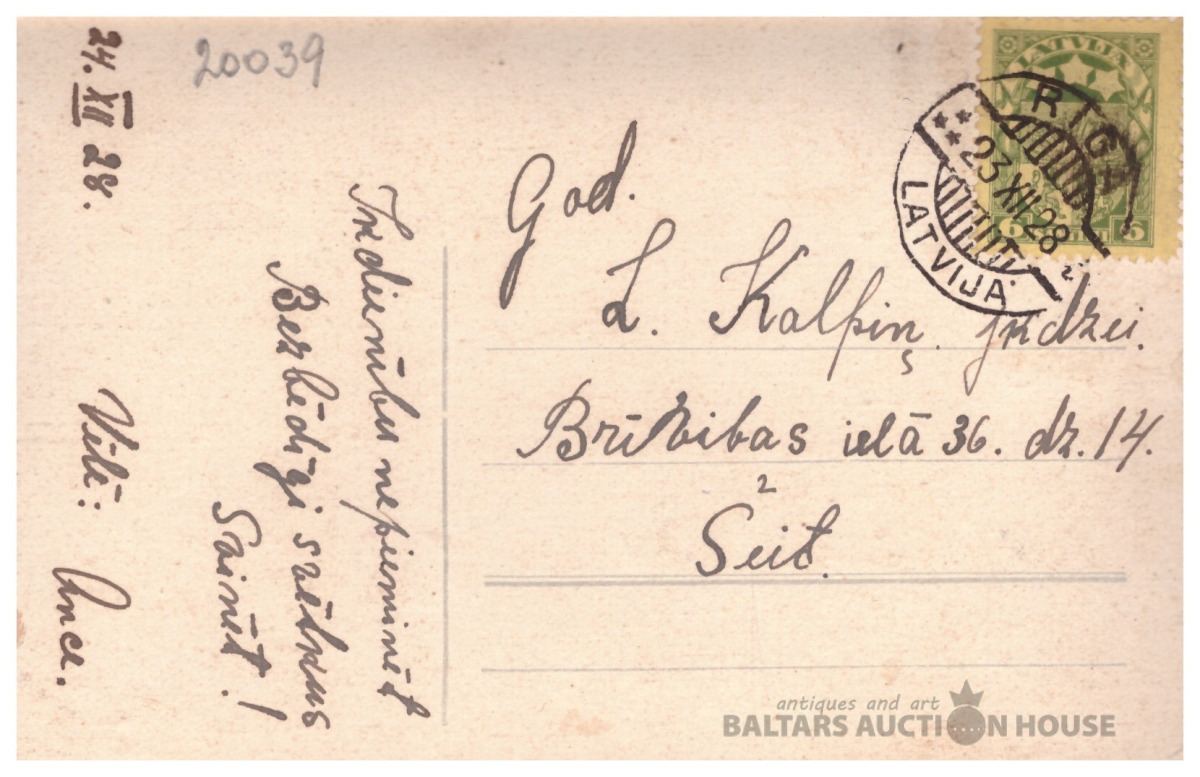 20039
24. XII 28.
Ikdienību nepieminēt
Bezbēdīgi svētkus
Svinēt!
Vēlē: Ance.
God.
L. Kalpiņ. jkdzei.
Brīvibas ielā 36. dz. 14.
Šeit.
LATVIJA
6 6
RIGA
23 XII 28
LATVIJA
antiques and art
BALTARS AUCTION HOUSE